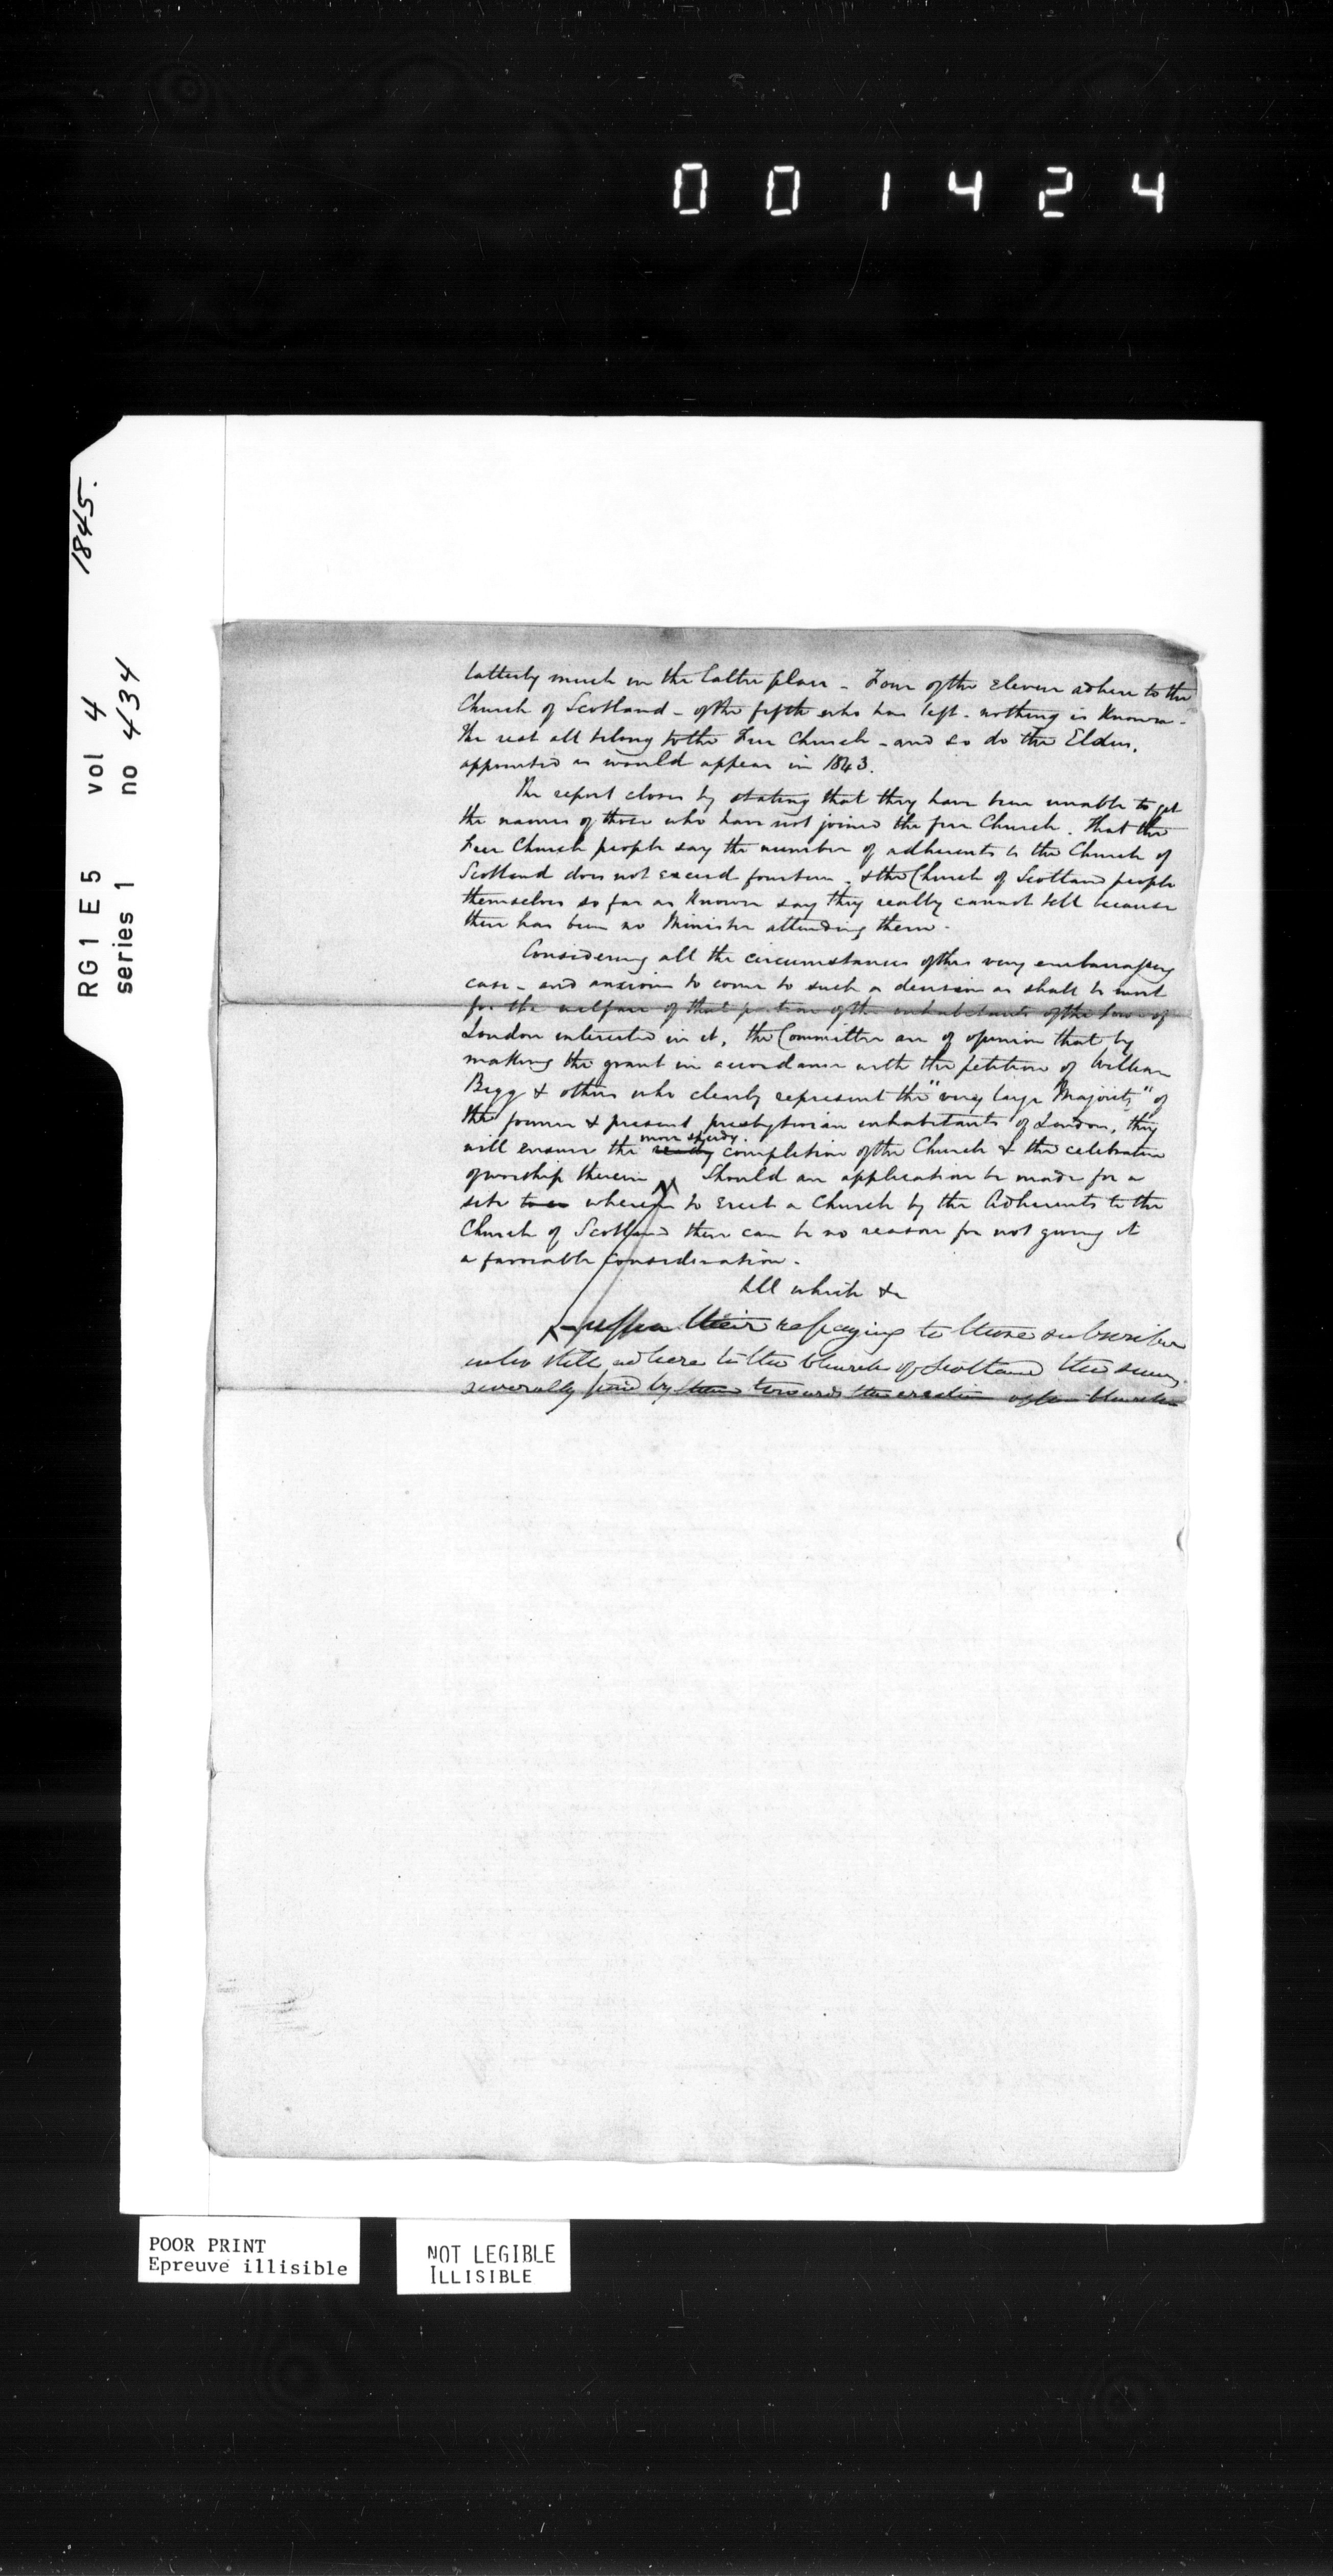 001424
1845.
RG1 E5 vol 4
series 1 no 434
latterly much in the latter place - Four of the Eleven adhere to the
Church of Scotland - of the fifth who has left - nothing is known -
The rest all belong to the Free Church - and so do the Elders,
appointed as would appear in 1843.
The report closes by stating that they have been unable to get
the names of those who have not joined the free Church. That the
Free Church people say the number of adherents to the Church of
Scotland does not exceed fourteen. & the Church of Scotland people
themselves so far as known say they really cannot tell because
there has been no Minister attending them.
Considering all the circumstances of this very embarrassing
case - and anxious to come to such a decision as shall be most
for the welfare of that portion of the inhabitants of the Town of
London interested in it, the Committee are of opinion that by
making the grant in accordance with the petition of William
Begg & others who clearly represent the "very large Majority" of
the former & present presbyterian inhabitants of London, they
more speedy
will ensure the ready completion of the Church & the celebration
of worship therein Should an application be made for a
site to er wherein to Erect a Church by the Adherents to the
Church of Scotland there can be no reason for not giving it
a favorable Consideration.
All which &c
upon their repaying to those subscribers
who still adhere to the Church of Scotland the sums
severally paid by them towards the erection of the Church
POOR PRINT
Epreuve illisible
NOT LEGIBLE
ILLISIBLE